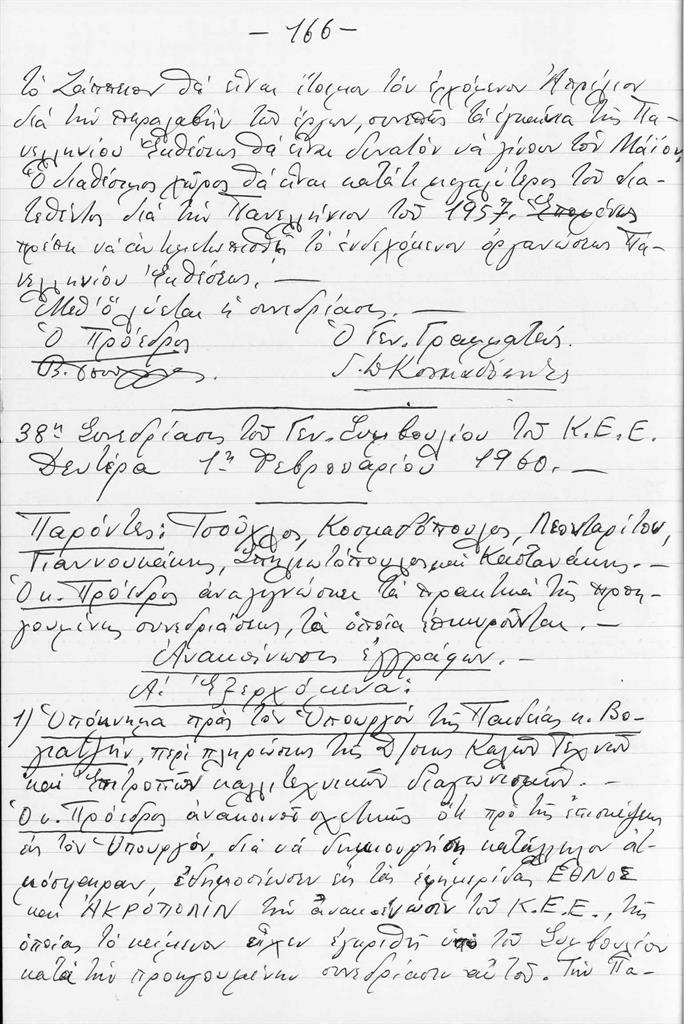 - 166 -
τὸ Ζάππειον θὰ εἶναι ἕτοιμον τὸν ἐρχόμενον Ἀπρίλιον
διὰ τὴν παραλαβὴν τῶν ἔργων, συνεπῶς τὰ ἐγκαίνια τῆς Πα-
νελληνίου Ἐκθέσεως θὰ εἶναι δυνατὸν νὰ γίνουν τὸν Μάϊον.
Ὁ διαθέσιμος χῶρος θὰ εἶναι κατά τι μεγαλύτερος τοῦ δια-
τεθέντος διὰ τὴν Πανελλήνιον τοῦ 1957. Ἑπομένως
πρέπει νὰ ἀντιμετωπισθῇ τὸ ἐνδεχόμενον ὀργανώσεως Πα-
νελληνίου Ἐκθέσεως. —
Μεθ' ὃ λύεται ἡ συνεδρίασις. —
Ὁ Πρόεδρος Ὁ Γεν. Γραμματεύς.
38η Συνεδρίασις τοῦ Γεν. Συμβουλίου τοῦ Κ.Ε.Ε.
Δευτέρα 1η Φεβρουαρίου 1960. —
Παρόντες: Τσοῦχλος, Κοσμαδόπουλος, Λεονταρίτου,
Γιαννουκάκης, Σπηλιωτόπουλος καὶ Καστανάκης. —
Ὁ κ. Πρόεδρος ἀναγιγνώσκει τὰ πρακτικὰ τῆς προη-
γουμένης συνεδριάσεως, τὰ ὁποῖα ἐπικυροῦνται. —
Ἀνακοίνωσις ἐγγράφων. —
Α! Ἐξερχόμενα:
1) Ὑπόμνημα πρὸς τὸν Ὑπουργὸν τῆς Παιδείας κ. Βο-
γιατζῆν, περὶ πληρώσεως τῆς Δ/σεως Καλῶν Τεχνῶν
καὶ Ἐπιτροπῶν καλλιτεχνικῶν διαγωνισμῶν. —
Ὁ κ. Πρόεδρος ἀνακοινοῖ σχετικῶς ὅτι πρὸ τῆς ἐπισκέψεως
εἰς τὸν Ὑπουργόν, διὰ νὰ δημιουργήσῃ κατάλληλον ἀτ-
μόσφαιραν, ἐδημοσίευσεν εἰς τὰς ἐφημερίδας ΕΘΝΟΣ
καὶ ἈΚΡΟΠΟΛΙΝ τὴν ἀνακοίνωσιν τοῦ Κ.Ε.Ε., τῆς
ὁποίας τὸ κείμενον εἶχεν ἐγκριθῆ ὑπὸ τοῦ Συμβουλίου
κατὰ τὴν προηγουμένην συνεδρίασιν αὐτοῦ. Τὴν Πα-